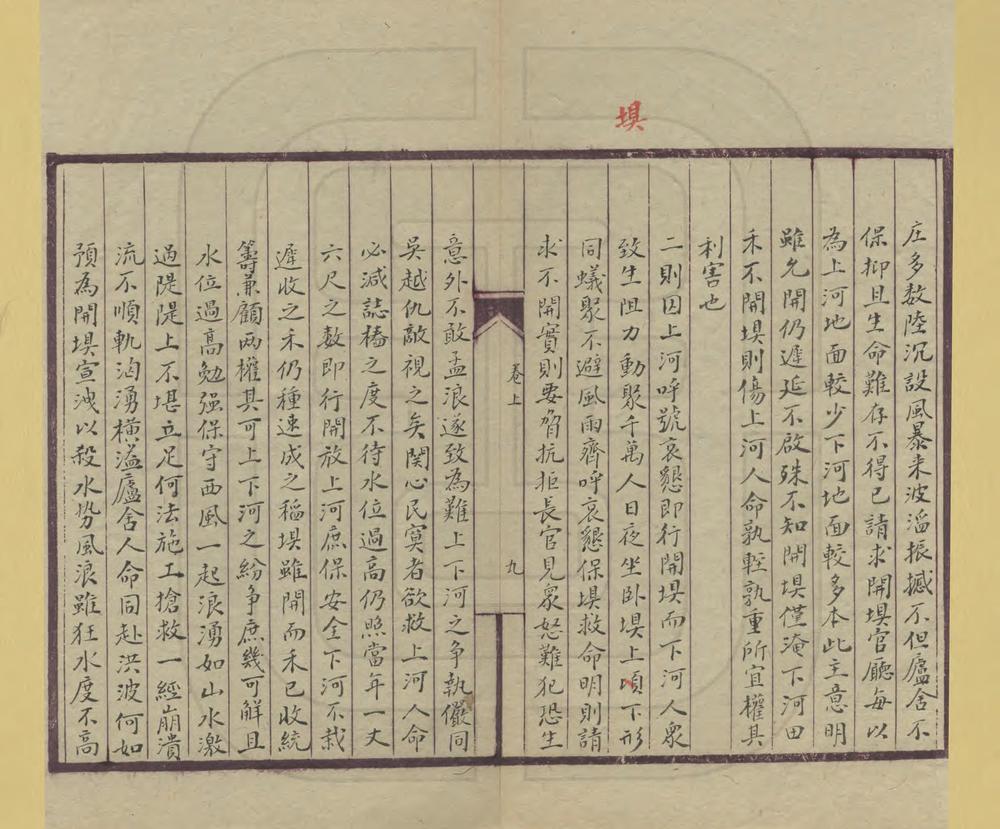 埧
庄多数陸沉設風暴来波濤振撼不但廬舍不
保抑且生命難存不得已請求開埧官廳每以
為上河地面較少下河地面較多本此主意明
雖允開仍遲延不啟殊不知開埧僅淹下河田
禾不開埧則傷上河人命孰輕孰重所宜權其
利害也
二則因上河呼號哀懇即行開埧而下河人衆
致生阻力動聚千萬人日夜坐卧埧上頃下形
同蟻聚不避風雨齊呼哀懇保埧救命明則請
求不開實則要脅抗拒長官見衆怒難犯恐生
卷上
九
意外不敢孟浪遂致為難上下河之争執儼同
吳越仇敵視之矣関心民寞者欲救上河人命
必減誌樁之度不待水位過高仍照當年一丈
六尺之数即行開放上河庶保安全下河不栽
遲收之禾仍種速成之稲埧雖開而禾已收統
籌兼顧两權其可上下河之紛争庶幾可解且
水位過高勉强保守西風一起浪湧如山水激
過隄隄上不堪立足何法施工搶救一經崩潰
流不順軌洶湧横溢廬舍人命同赴洪波何如
預為開埧宣洩以殺水势風浪雖狂水度不高